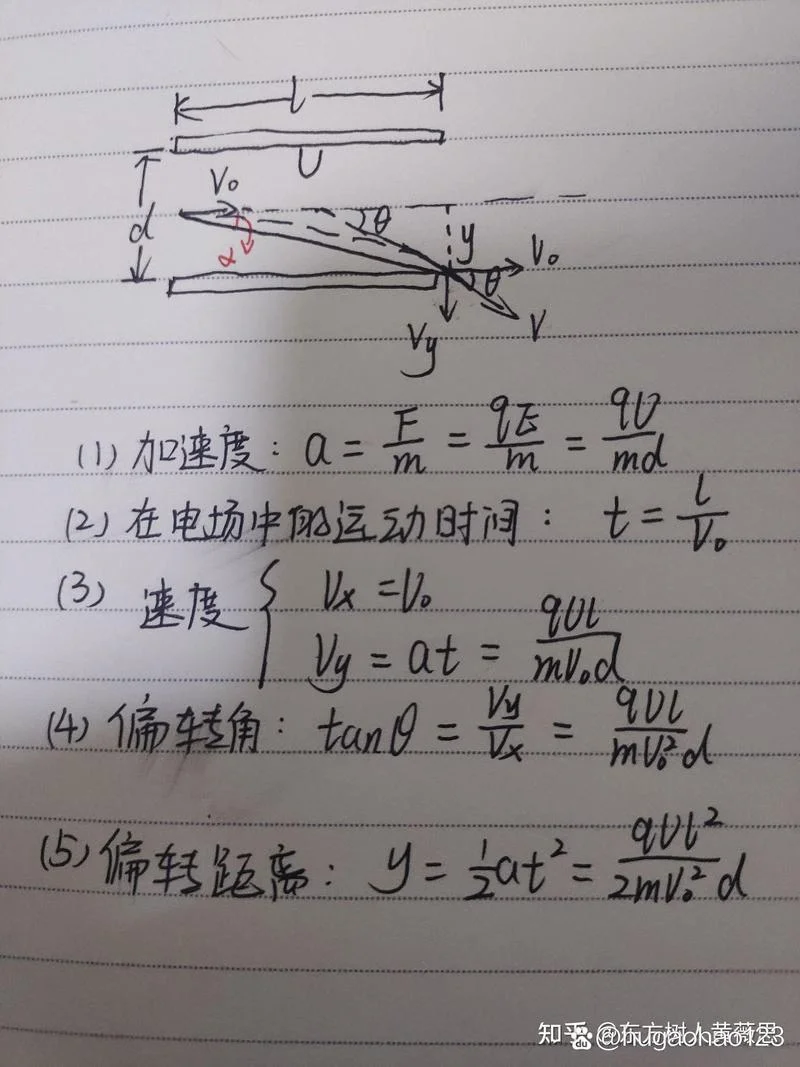 l
U
d
V₀
α
θ
y
V₀
θ
Vy
V
(1) 加速度: a = F/m = qE/m = qU/md
(2) 在电场中的运动时间: t = l/V₀
(3) 速度 { Vx = V₀
Vy = at = qUl/mV₀d
(4) 偏转角: tanθ = Vy/Vx = qUl/mV₀²d
(5) 偏转距离: y = ½at² = qUl²/2mV₀²d
知乎 @东方树人黄薇思